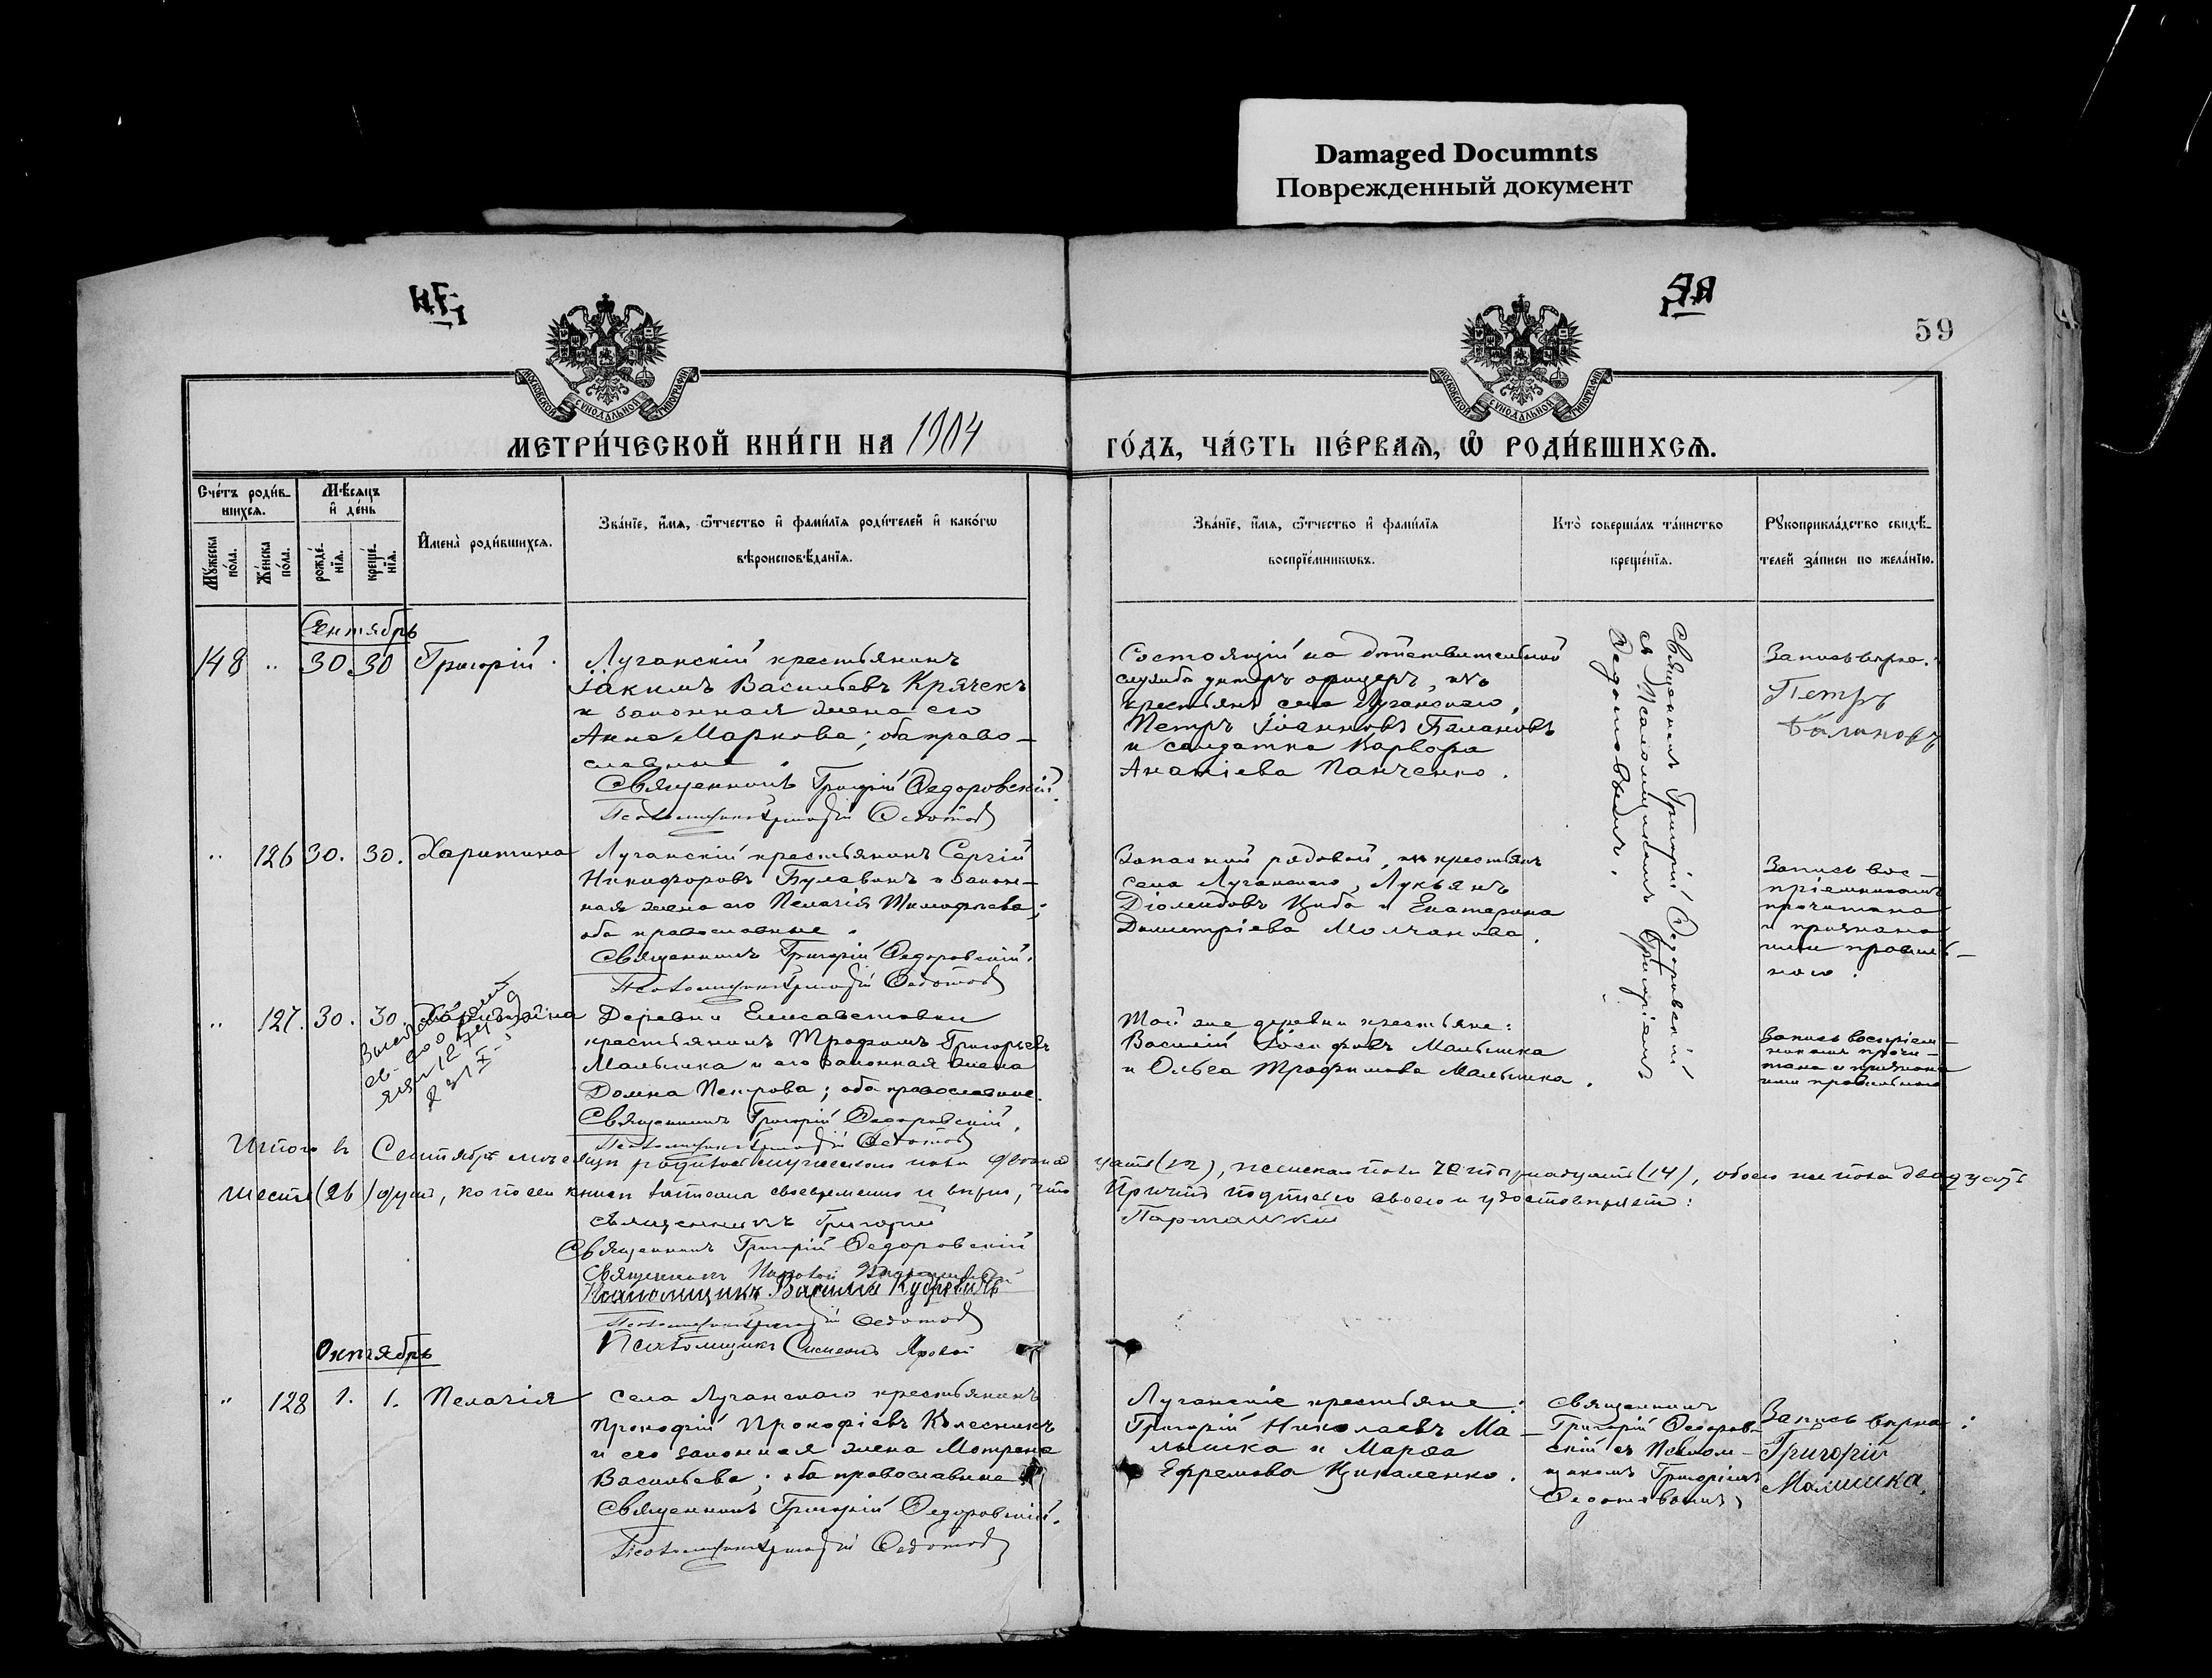 Damaged Documnts
Поврежденный документ
59
МОСКОВСКОЙ СѴНОДАЛЬНОЙ ТИПОГРАФІИ
МОСКОВСКОЙ СѴНОДАЛЬНОЙ ТИПОГРАФІИ
МЕТРИ́ЧЕСКОЙ КНИ́ГИ НА 1904
ГО́ДЪ, ЧА́СТЬ ПЕ́РВАѦ, Ѡ РОДИ́ВШИХСѦ.
Сче́тъ роди́в-
шихсѧ.
Мꙋжеска по́ла.
Же́нска по́ла.
Мѣ́сѧцъ
и҆ де́нь
рожде́-
нїѧ.
креще́-
нїѧ.
И҆мена̀ роди́вшихсѧ.
Зва́нїе, и҆́мѧ, ѻ҆́тчество и҆ фами́лїѧ роди́телей и҆ како́гѡ
вѣроисповѣ́данїѧ.
Зва́нїе, и҆́мѧ, ѻ҆́тчество и҆ фами́лїѧ
воспрїе́мникѡвъ.
Кто̀ соверша́лъ та́инство
креще́нїѧ.
Рꙋкоприкла́дство свидѣ́-
телей за́писи по жела́нїю.
Сентябрь
148 " 30. 30 Григорій.
Луганскій крестьянинъ
Іакимъ Васильевъ Крячекъ
и законная жена его
Анна Маркова; оба право-
славные.
Священникъ Григорій Ѳедоровскій.
Псаломщикъ Григорій Ѳедотов
Состоящій на дѣйствительной
службѣ унтеръ офицеръ, изъ
крестьянъ села Луганскаго,
Петръ Іоанновъ Балановъ
и солдатка Варвара
Ананіева Панченко.
Священникъ Григорій Ѳедоровскій
съ Псаломщикомъ Григоріемъ
Ѳедотовымъ.
Запись вѣрна:
Петръ
Балановъ
" 126 30. 30. Харитина
Луганскій крестьянинъ Сергій
Никифоровъ Булавинъ и закон-
ная жена его Пелагія Тимофеева;
оба православные.
Священникъ Григорій Ѳедоровскій.
Псаломщикъ Григорій Ѳедотов
Запасный рядовой, изъ крестьянъ
села Луганскаго, Лукьянъ
Діомидовъ Цыба и Екатерина
Димитріева Молчанова.
Запись вос-
пріемниками
прочитана
и признана
ими правиль-
ною.
" 127. 30. 30. Харитина
Деревни Елисаветовки
крестьянинъ Трофимъ Григорьевъ
Малышка и его законная жена
Домна Петрова; оба православные.
Священникъ Григорій Ѳедоровскій.
Псаломщикъ Григорій Ѳедотов
Той же деревни крестьяне:
Василій Іосифовъ Малышка
и Ольга Трофимова Малышка.
Запись воспріем-
никами прочи-
тана и признана
ими правильною
Итого въ Сентябрѣ мѣсяцѣ родилось мужескаго пола двѣнад
цать (12), женскаго пола четырнадцать (14), обоего же пола двадцать
шесть (26) душъ, кои по сей книгѣ записаны своевременно и вѣрно, что
Причтъ подписью своею и удостовѣряетъ:
Священникъ Григорій
Священникъ Григорій Ѳедоровскій
Священникъ
Псаломщикъ Василій
Псаломщикъ Григорій Ѳедотов
Псаломщикъ Симеонъ Яровой
Октябрь
" 128 1. 1. Пелагія
Села Луганскаго крестьянинъ
Прокофій Прокофіевъ Колесникъ
и его законная жена Мотрена
Васильева; оба православные
Священникъ Григорій Ѳедоровскій.
Псаломщикъ Григорій Ѳедотов
Луганскіе крестьяне:
Григорій Николаевъ Ма-
лышка и Марѳа
Ефремова Цикаленко.
Священникъ
Григорій Ѳедоров-
скій съ Псалом-
щикомъ Григоріемъ
Ѳедотовымъ
Запись вѣрна:
Григорій
Малишка.